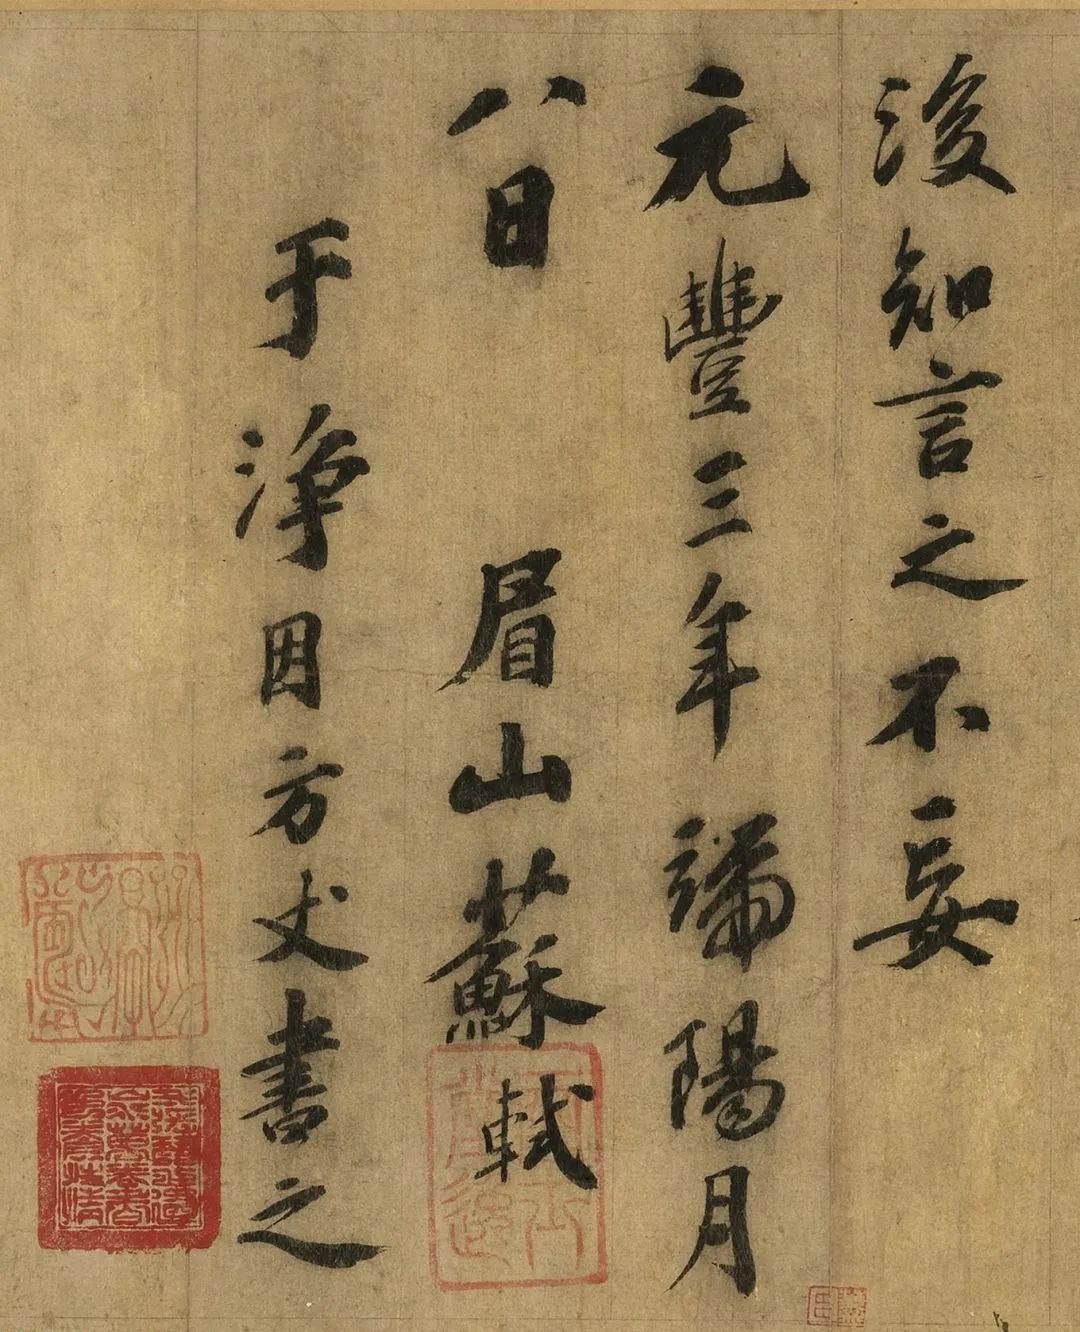 後知言之不妄
元豐三年端陽月
八日 眉山蘇軾
于淨因方丈書之